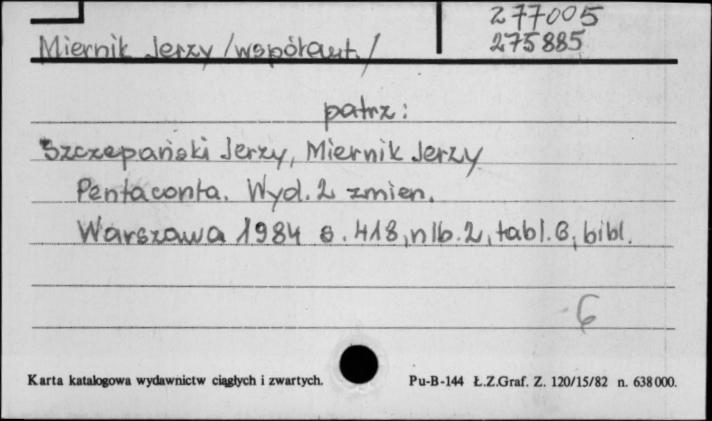 277005
Miernik Jerzy /współaut./ 275885
patrz:
Szczepański Jerzy, Miernik Jerzy
Pentaconta. Wyd. 2 zmien.
Warszawa 1984 s. 418, nlb. 2, tabl. 6, bibl.
6
Karta katalogowa wydawnictw ciągłych i zwartych. Pu-B-144 Ł.Z.Graf. Z. 120/15/82 n. 638 000.